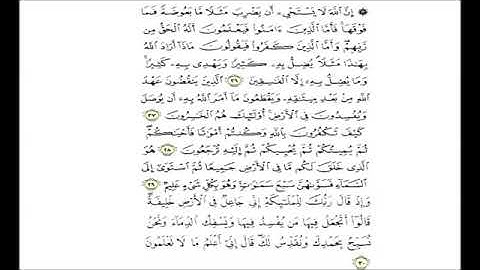 ۞ إِنَّ ٱللَّهَ لَا يَسْتَحْىِۦٓ أَن يَضْرِبَ مَثَلًا مَّا بَعُوضَةً فَمَا
فَوْقَهَا فَأَمَّا ٱلَّذِينَ ءَامَنُوا۟ فَيَعْلَمُونَ أَنَّهُ ٱلْحَقُّ مِن
رَّبِّهِمْ وَأَمَّا ٱلَّذِينَ كَفَرُوا۟ فَيَقُولُونَ مَاذَآ أَرَادَ ٱللَّهُ
بِهَٰذَا مَثَلًا يُضِلُّ بِهِۦ كَثِيرًا وَيَهْدِى بِهِۦ كَثِيرًا
وَمَا يُضِلُّ بِهِۦٓ إِلَّا ٱلْفَٰسِقِينَ ٢٦ ٱلَّذِينَ يَنقُضُونَ عَهْدَ
ٱللَّهِ مِنۢ بَعْدِ مِيثَٰقِهِۦ وَيَقْطَعُونَ مَآ أَمَرَ ٱللَّهُ بِهِۦٓ أَن يُوصَلَ
وَيُفْسِدُونَ فِى ٱلْأَرْضِ أُو۟لَٰٓئِكَ هُمُ ٱلْخَٰسِرُونَ ٢٧
كَيْفَ تَكْفُرُونَ بِٱللَّهِ وَكُنتُمْ أَمْوَٰتًا فَأَحْيَٰكُمْ
ثُمَّ يُمِيتُكُمْ ثُمَّ يُحْيِيكُمْ ثُمَّ إِلَيْهِ تُرْجَعُونَ ٢٨ هُوَ
ٱلَّذِى خَلَقَ لَكُم مَّا فِى ٱلْأَرْضِ جَمِيعًا ثُمَّ ٱسْتَوَىٰٓ إِلَى
ٱلسَّمَآءِ فَسَوَّىٰهُنَّ سَبْعَ سَمَٰوَٰتٍ وَهُوَ بِكُلِّ شَىْءٍ عَلِيمٌ ٢٩
وَإِذْ قَالَ رَبُّكَ لِلْمَلَٰٓئِكَةِ إِنِّى جَاعِلٌ فِى ٱلْأَرْضِ خَلِيفَةً
قَالُوٓا۟ أَتَجْعَلُ فِيهَا مَن يُفْسِدُ فِيهَا وَيَسْفِكُ ٱلدِّمَآءَ وَنَحْنُ
نُسَبِّحُ بِحَمْدِكَ وَنُقَدِّسُ لَكَ قَالَ إِنِّىٓ أَعْلَمُ مَا لَا تَعْلَمُونَ
٣٠